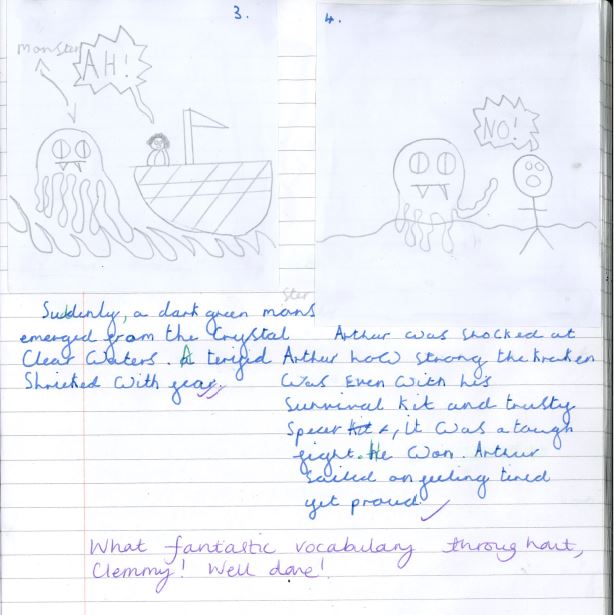 3.
monster
AH!
Suddenly, a dark green mons
ster
emerged from the Crystal
Clear Waters. A terified Arthur
Shrieked with fear.
4.
NO!
Arthur was shocked at
how strong the kraken
was Even with his
Survival kit and trusty
Spear, It was a tough
fight. He won. Arthur
Sailed on feeling tired
yet proud.
What fantastic vocabulary throughout,
Clemmy! Well done!